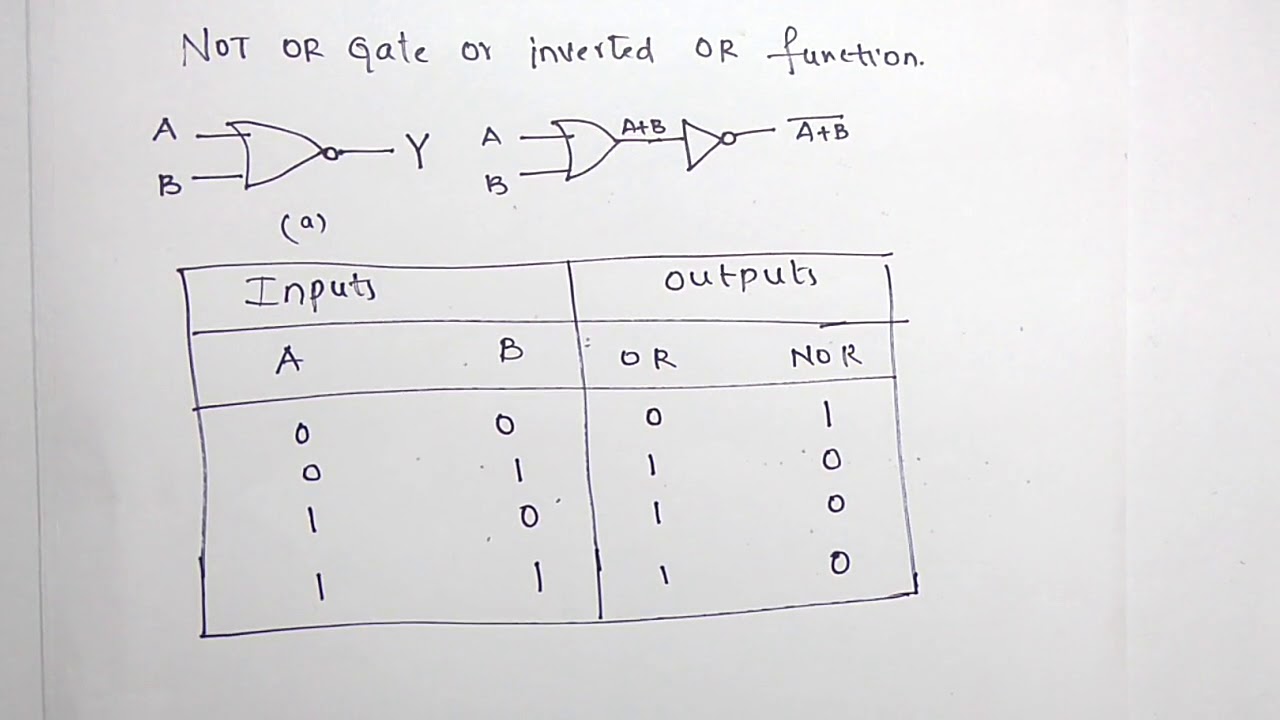 NOT OR Gate or inverted OR function.
A Y A A+B A+B̅
B B
(a)
Inputs outputs
A B OR NOR
0 0 0 1
0 1 1 0
1 0 1 0
1 1 1 0